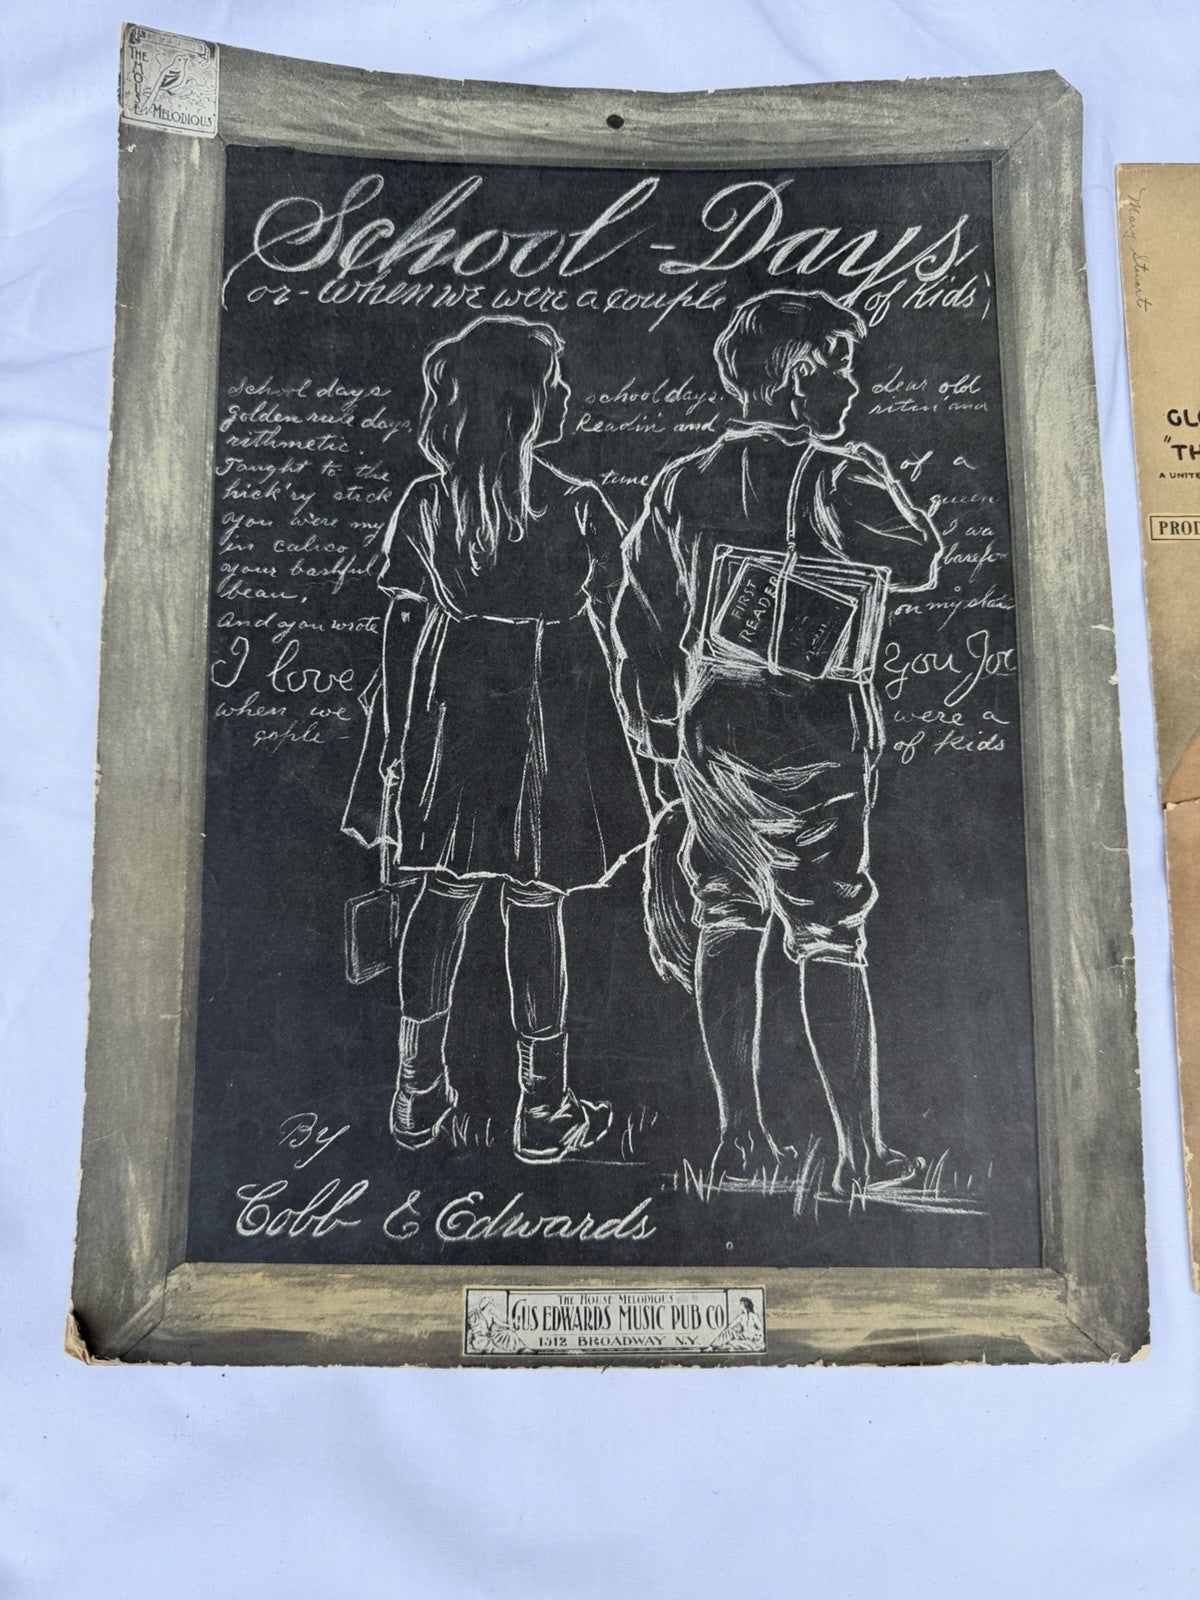 THE HOUSE MELODIOUS
School-Days
(or-When we were a couple of Kids)
School days school days. dear old
golden rule days, Readin' and ritin' and
rithmetic.
Taught to the time of a
hick'ry stick
You were my queen
in calico I wa
your bashful barefo
beau,
And you wrote on my sla
I love You Joe
when we were a
cople - of kids
FIRST
READER
By
Cobb & Edwards
THE HOUSE MELODIOUS
GUS EDWARDS MUSIC PUB CO
1512 BROADWAY N.Y.
Mary Stuart
GLO
"TH
A UNITE
PROD